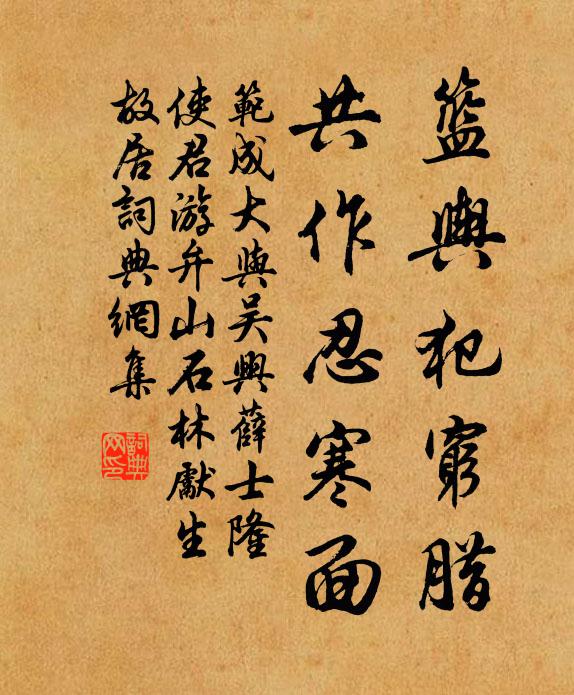 籃輿犯窮腊
共作忍寒面
範成大與吴興薛士隆
使君游弁山石林獻生
故居詞典網集
詞典网印